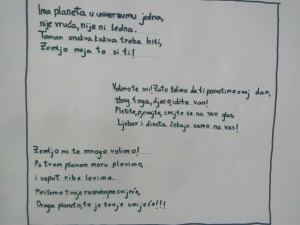 Ima planeta u univerzumu jedna,
nije vruća, nije ni ledna.
Taman onakva kakva treba biti,
Zemljo moja to si ti!
Volimo te svi! Zato želimo da ti posvetimo ovaj dan,
zbog toga, djeco, idite van!
Plešite, pjevajte, smijte se na sav glas,
Ljubav i divota čekaju samo na vas!
Zemljo mi te mnogo volimo!
Po tvom plavom moru plovimo,
i usput ribe lovimo.
Mirišemo tvoje raznobojno cvijeće,
Draga planeto, to je tvoje umijeće!!!